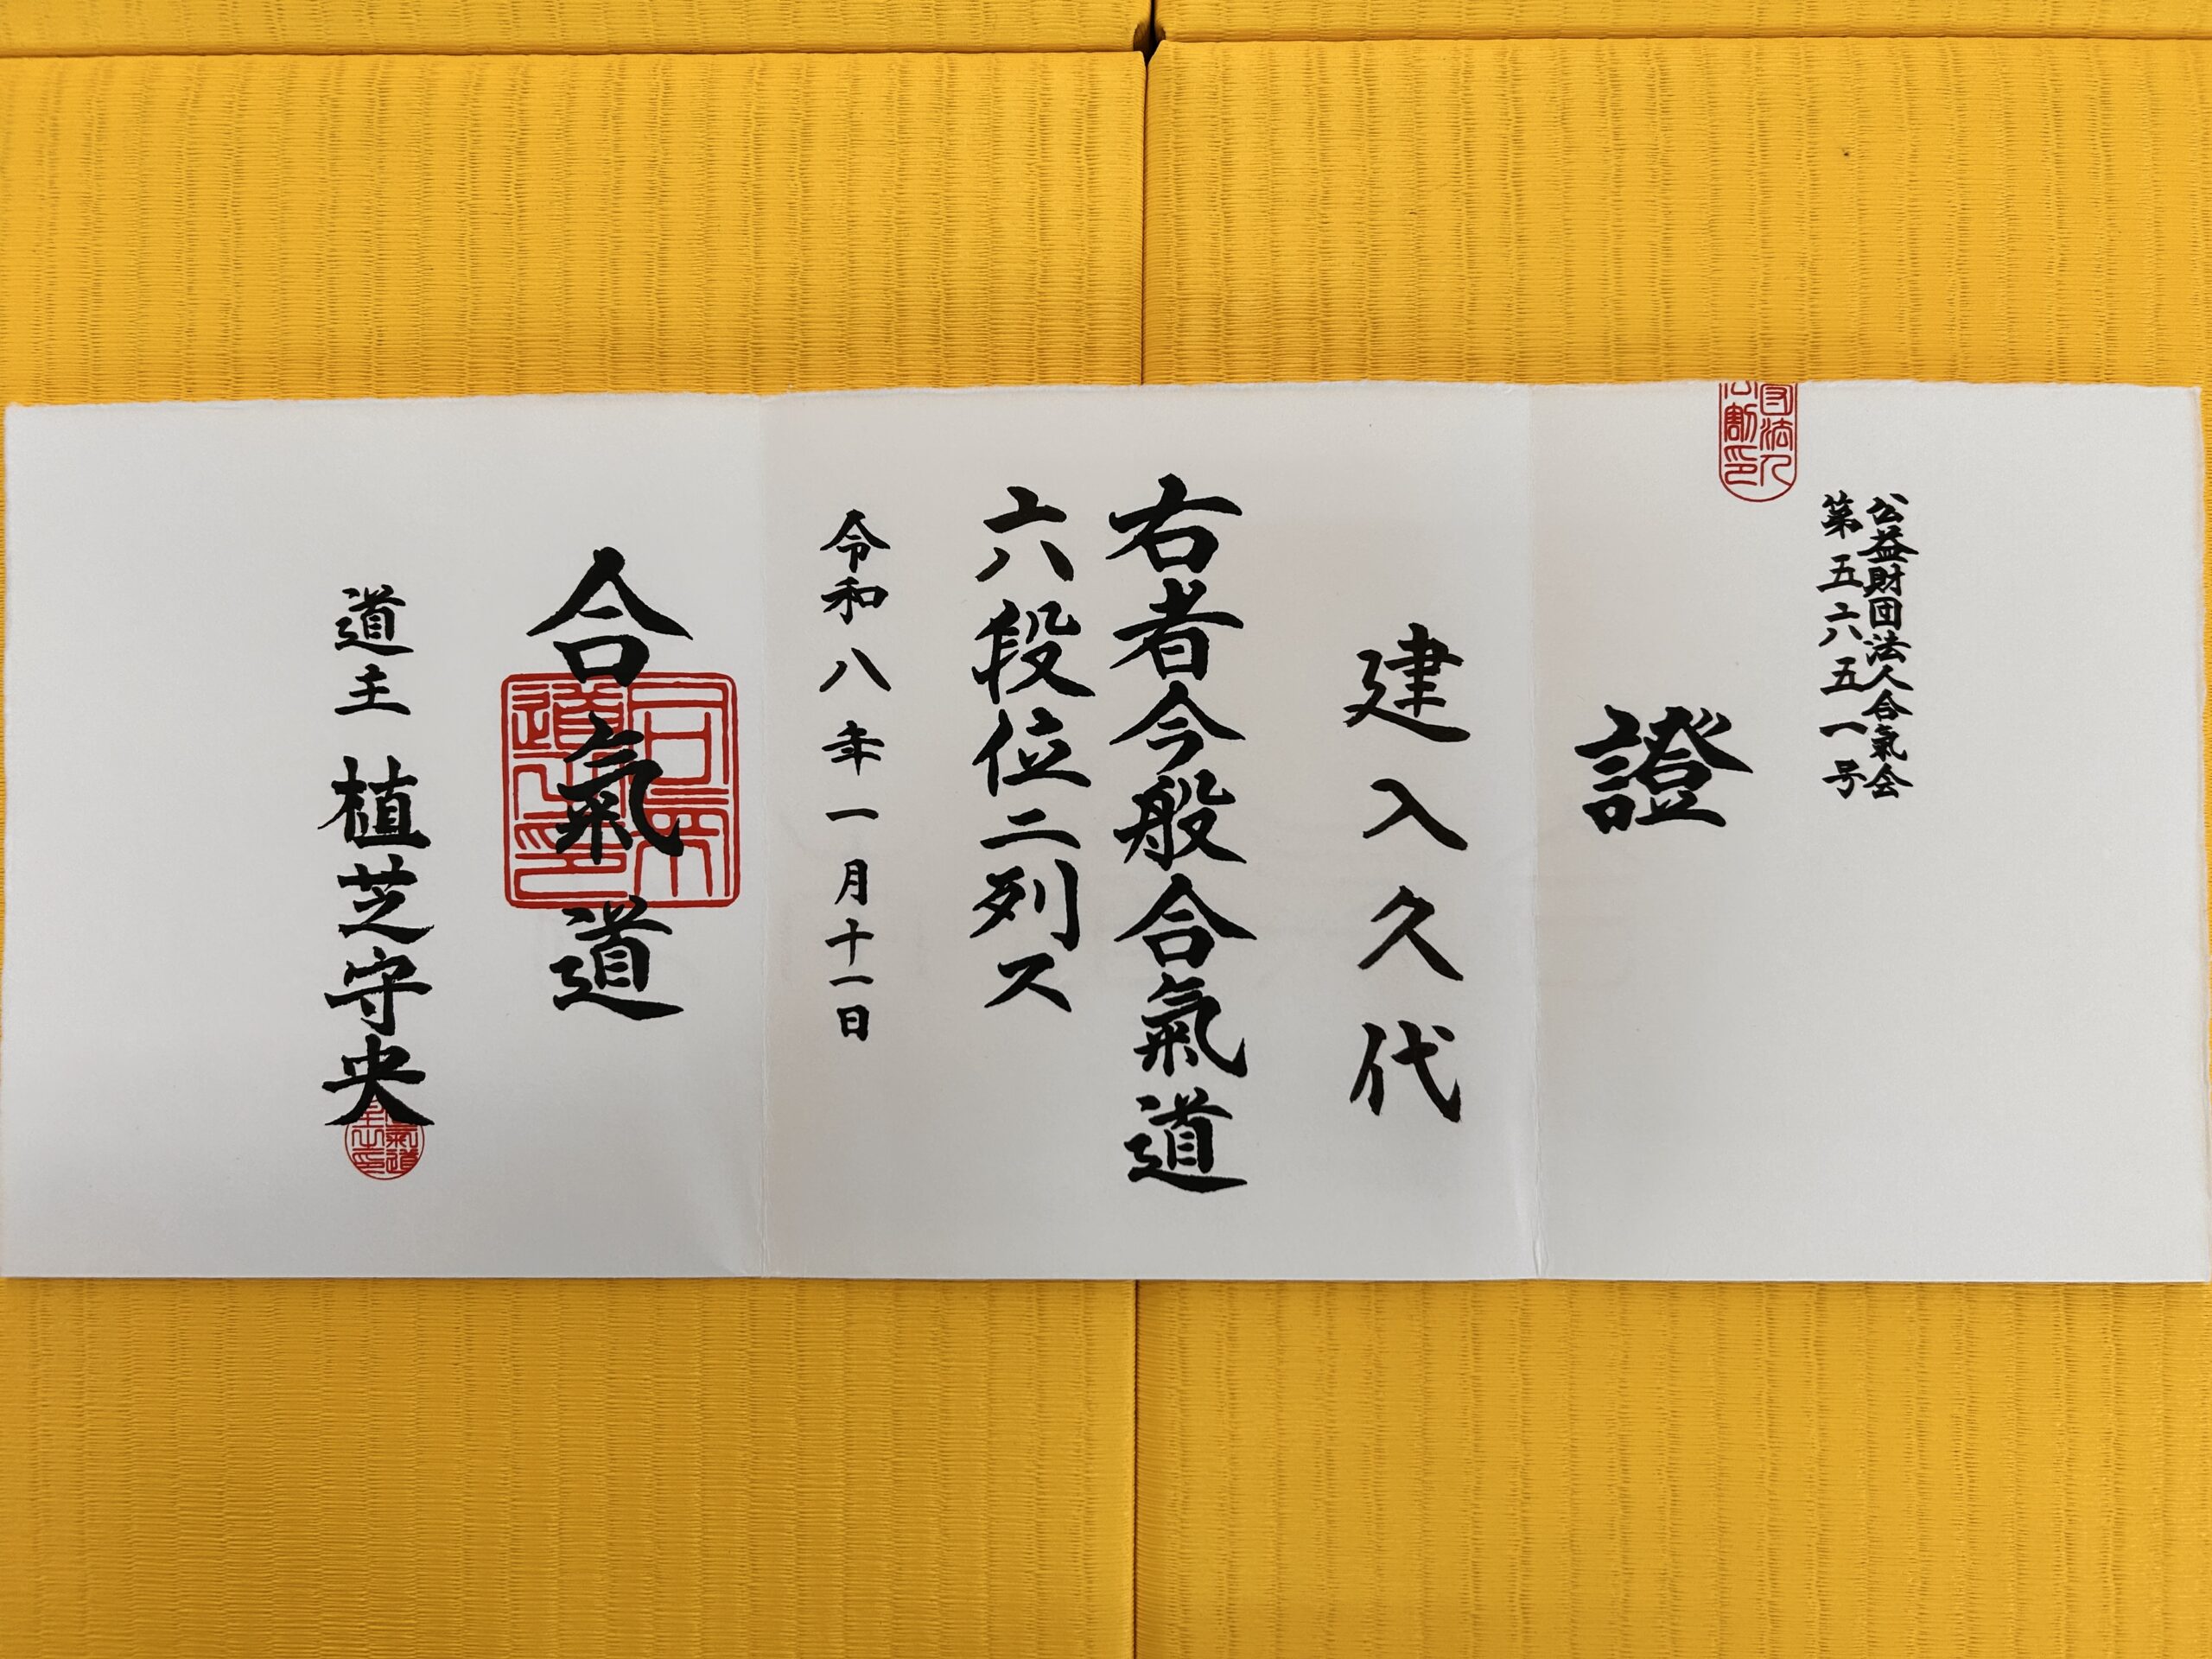 公益財団法人合氣会
第五六五一号
證
建入久代
右者今般合氣道
六段位ニ列ス
令和八年一月十一日
合氣道
道主 植芝守央